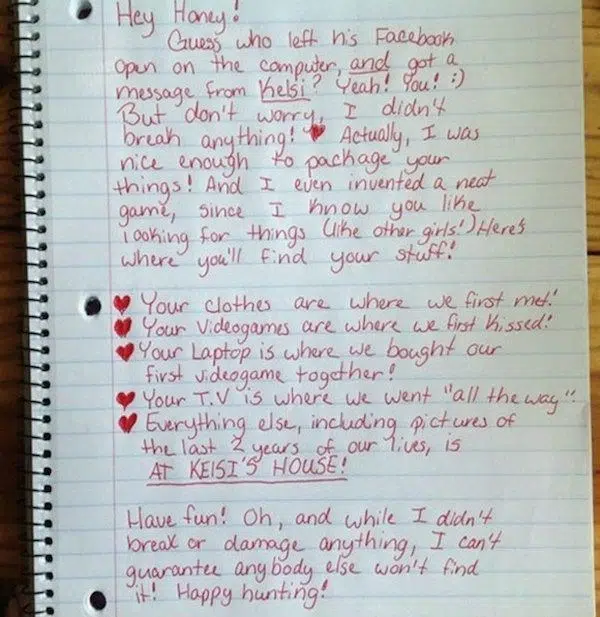 Hey Honey!
Guess who left his Facebook
open on the computer, and got a
message from Kelsi? Yeah! You! :)
But don't worry, I didn't
break anything! ♥ Actually, I was
nice enough to package your
things! And I even invented a neat
game, since I know you like
looking for things (like other girls!) Here's
where you'll find your stuff!
♥ Your clothes are where we first met!
♥ Your videogames are where we first kissed!
♥ Your Laptop is where we bought our
first videogame together!
♥ Your T.V is where we went "all the way"!
♥ Everything else, including pictures of
the last 2 years of our lives, is
AT KELSI'S HOUSE!
Have fun! Oh, and while I didn't
break or damage anything, I can't
guarantee anybody else won't find
it! Happy hunting!